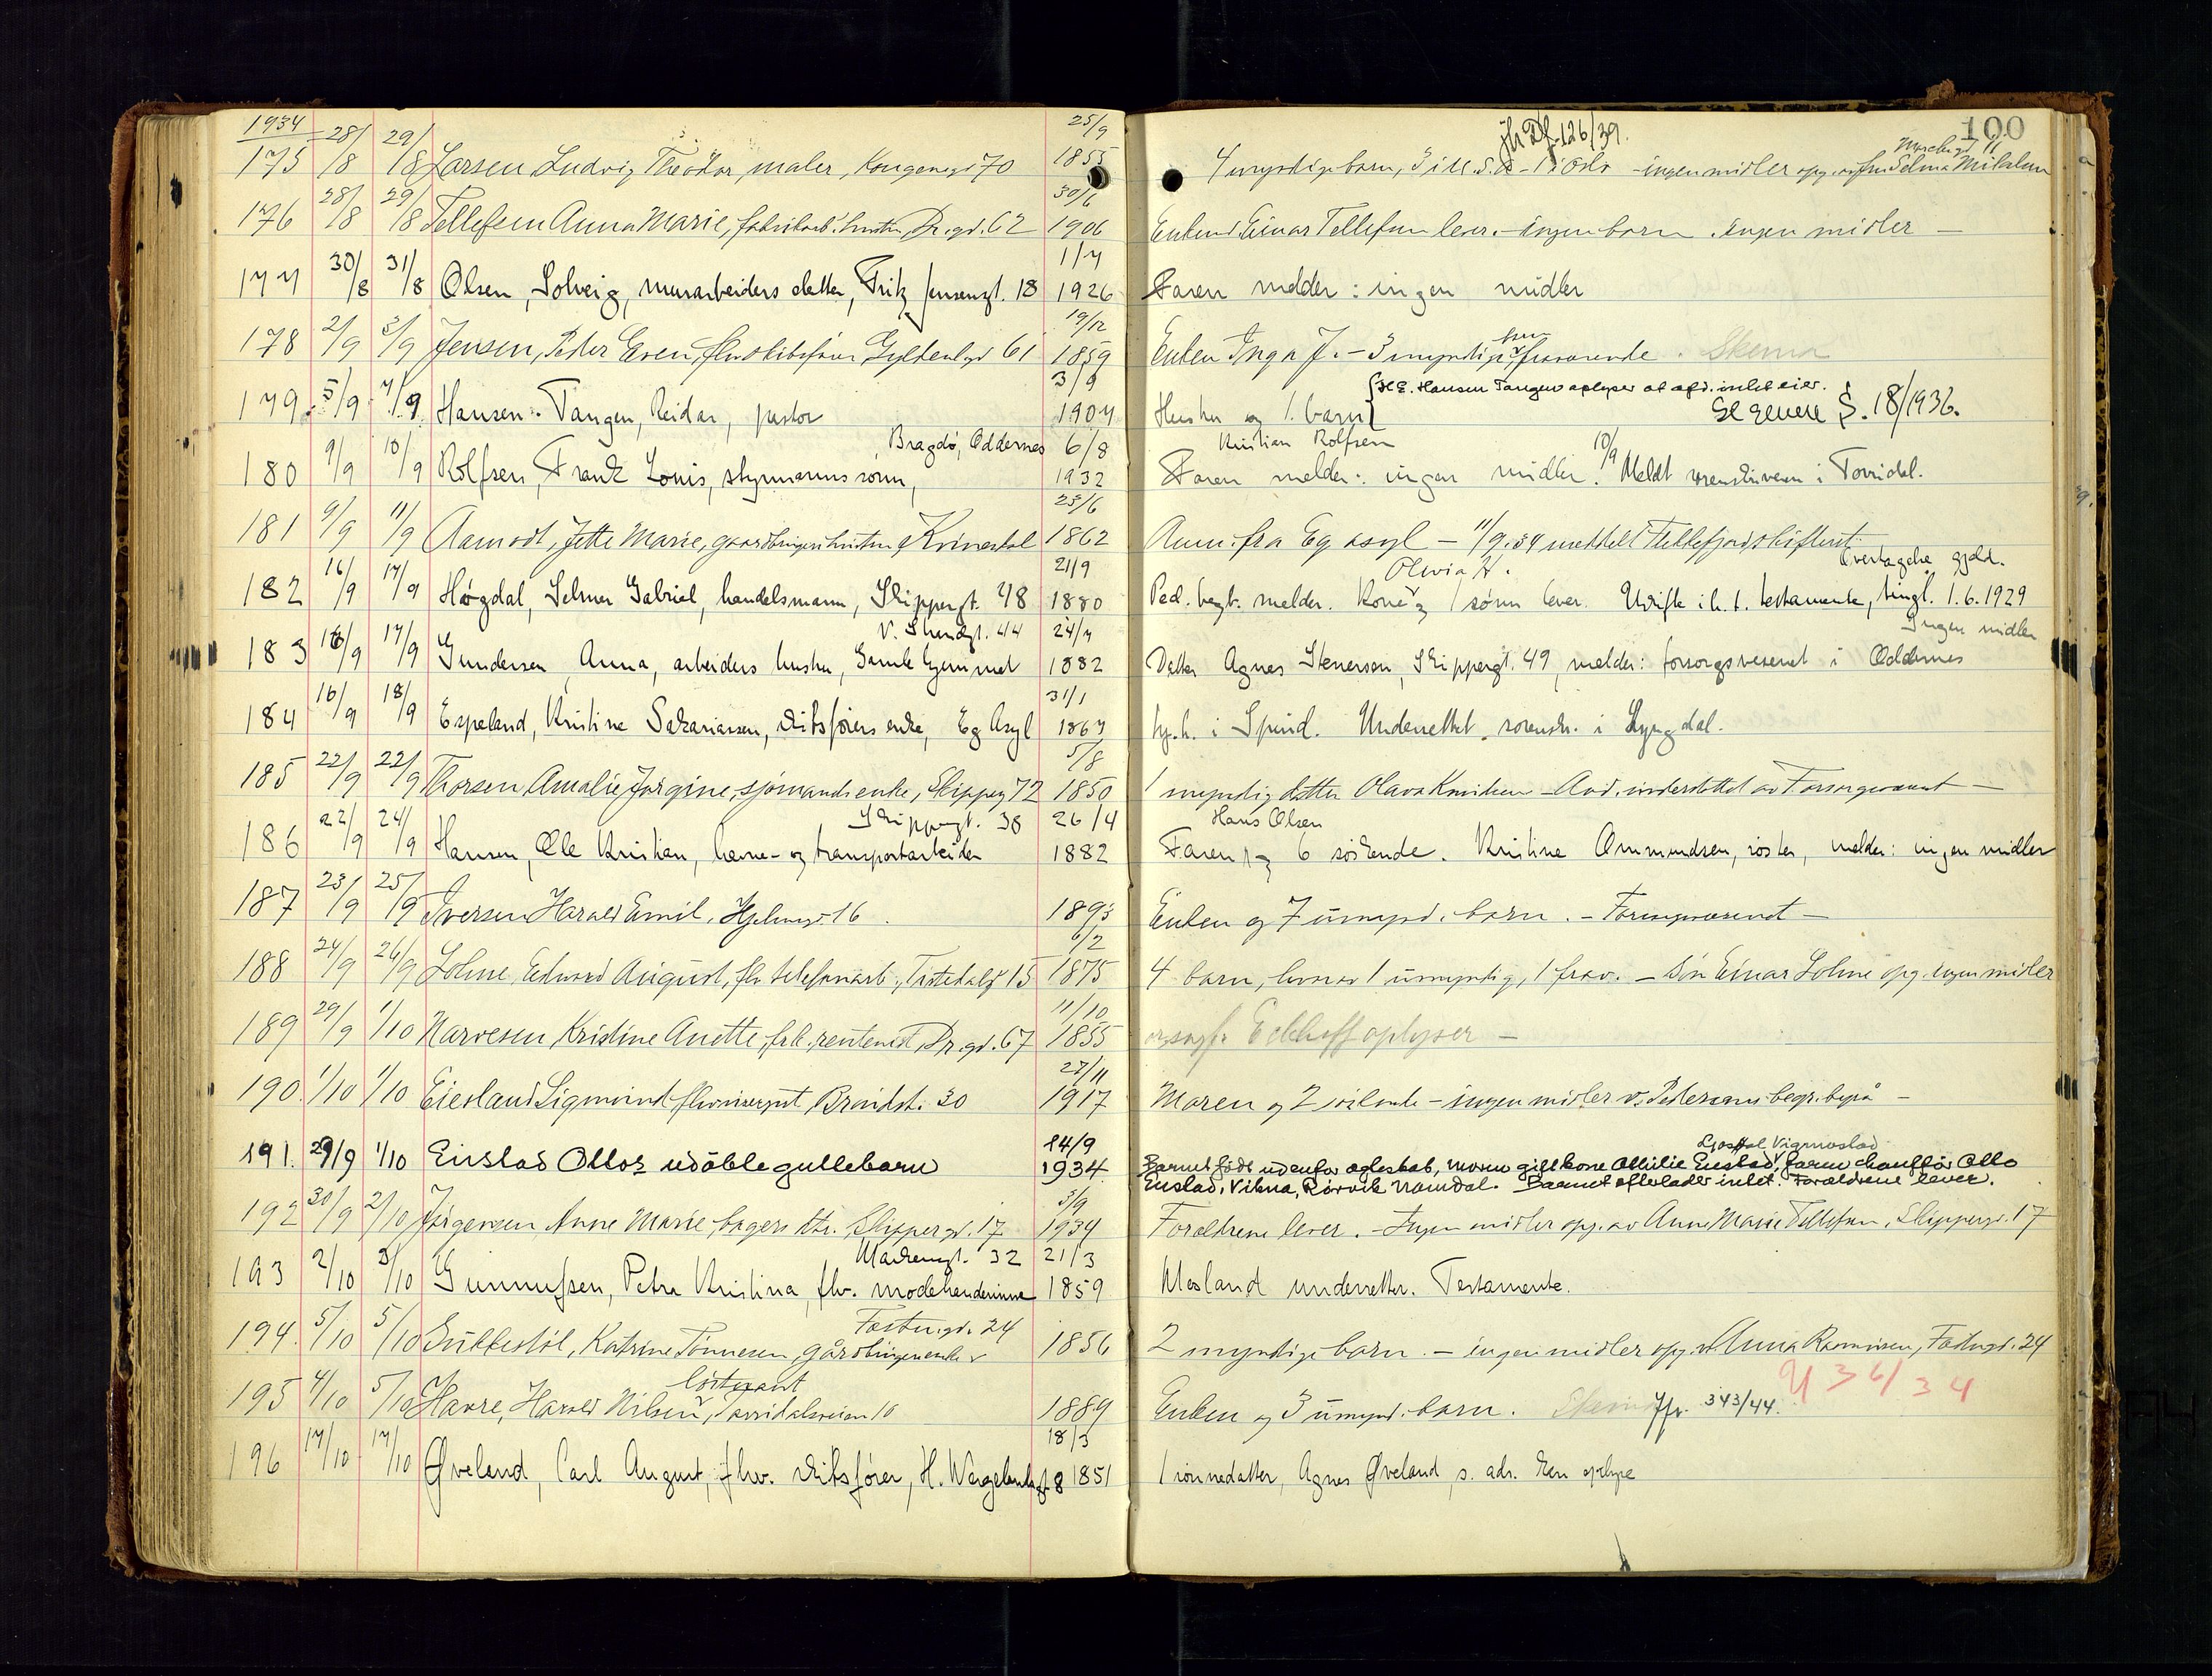 1934
100
jfr Df. 126/39.
175 28/8 29/8 Larsen Ludvig Theodor, maler, Kongensgt 70 25/9 1855
4 myndige barn, 3 i U.S.A - 1 i Oslo - ingen midler opg. av fru Selma
176 28/8 29/8 Tellefsen Anna Marie, fabrikarb. hustru, Dr. gt. 62 30/6 1906
Enkem. Einar Tellefsen lever. - ingen barn. ingen midler -
177 30/8 31/8 Olsen, Solveig, murarbeiders datter, Fritz Jensensgt. 18 1/7 1926
Faren melder: ingen midler
178 2/9 3/9 Jensen, Peder Even, fhv skibsfører Gyldenløvsgt 61 19/12 1859
Enken Inga J. - 3 myndige, fraværende. Skema
179 5/9 7/9 Hansen-Tangen, Reidar, pastor 3/9 1907
Hustru og 1 barn
H.E. Hansen Tangen oplyser at afd. intet eier.
Se senere S. 18/1936.
180 9/9 10/9 Rolfsen, Frank Louis, styrmanns sønn, Bragdø, Oddernes 6/8 1932
Kristian Rolfsen
Faren melder: ingen midler. 10/9 Meldt sorenskriveren i Torridal.
181 9/9 11/9 Aamodt, Jette Marie, gaardbrugerhustru, Kvinesdal 25/6 1862
Anm. fra Eg asyl - 11/9.34 meddelt
182 16/9 17/9 Høgdal, Selmer Gabriel, handelsmann, Skippergt. 48 21/9 1880
Olivia H.
Ped. begr.b. melder. Kone og 1 sønn lever. Uskifte i h. t. testamente, tingl. 1.6.1929
Overtagelse gjeld.
183 16/9 17/9 Gundersen Anna, arbeiders hustru, Gamle hjemmet V. Strandgt. 44 24/7 1882
Datter Agnes Stenersen, Skippergt. 49, melder: forsorgsvesenet i Oddernes
Ingen midler
184 16/9 18/9 Espeland, Kristine Sakariassen, skibsførers enke, Eg Asyl 31/1 1867
hj.h. i Spind. Underrettet sorenskr. i Lyngdal.
185 22/9 22/9 Thorsen Amalie Jørgine, sjømands enke, Skipperg 72 5/8 1850
1 myndig datter Olava Knudsen - Avd. understøttet av Forsorgsvæsenet -
186 22/9 24/9 Hansen, Ole Kristian, havne- og transportarbeider Skippergt. 38 26/4 1882
Hans Olsen
Faren og 6 søskende. Kristine Ommundsen, søster, melder: ingen midler
187 23/9 25/9 Iversen Harald Emil, 16 1893
Enken og 7 umynd. barn. - Forsorgsvæsenet -
188 24/9 26/9 Lohne Edvard August, fhv telefonarb., Tostedalsgt 15 6/2 1875
4 barn, hvorav 1 umyndig, 1 frav. - Søn Einar Lohne opg. ingen midler
189 29/9 1/10 Narvesen Kristine Anette, frk. rentenist, Dr. gt. 67 11/10 1855
Eckhoff oplyser -
190 1/10 1/10 Eieland Sigmund Brondst. 30 27/11 1917
Moren og 2 søskende - ingen midler v. Pedersens begr. byrå -
191. 29/9 1/10 Enstad Ottos udøbte guttebarn 14/9 1934
Barnet født udenfor ægteskab, moren gift kone Ottilie Enstad, faren chauffør Otto
Vigmostad
Enstad, Vikna, Rørvik Namdal. Barnet efterlader intet. Forældrene lever.
192 30/9 2/10 Jørgensen Anne Marie, bagers dtr. Skippergt. 17 3/9 1934
Forældrene lever. - Ingen midler opg. av Anne Marie Tellefsen, Skippergt. 17
193 2/10 3/10 Gunnufsen, Petra Kristina, fhv. modehandlerinne Markensgt. 32 21/3 1859
Mosland underretter. Testamente.
194. 5/10 5/10 Katrine Tønnesen, gårdbrugerenke Festn.gt. 24 1856
2 myndige barn. - ingen midler opg. v. Anna Rasmussen, Festn.gt. 24
195 4/10 5/10 Havre, Harald Nilsen, Torridalsveien 10 1889
Enken og 3 umynd. barn. Skema Jfr. 343/44.
U 36/34
196 17/10 17/10 Øveland, Carl August, fhv. skibsfører, H. Wergelandsgt. 8 18/3 1851
1 sønnedatter, Agnes Øveland, s. adr. kan oplyse